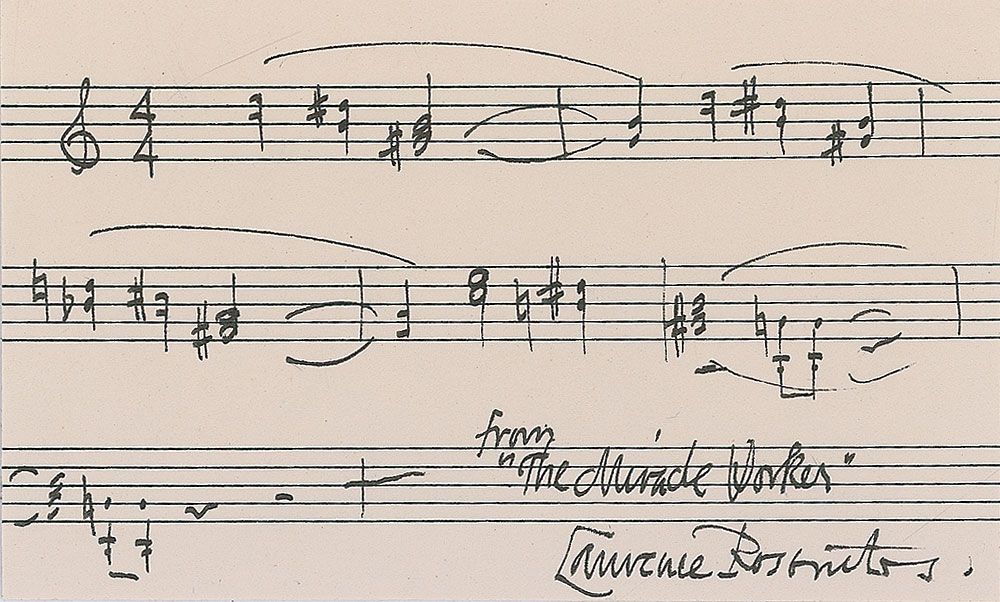 4
4
from
"The Miracle Worker"
Laurence Rosenthal.